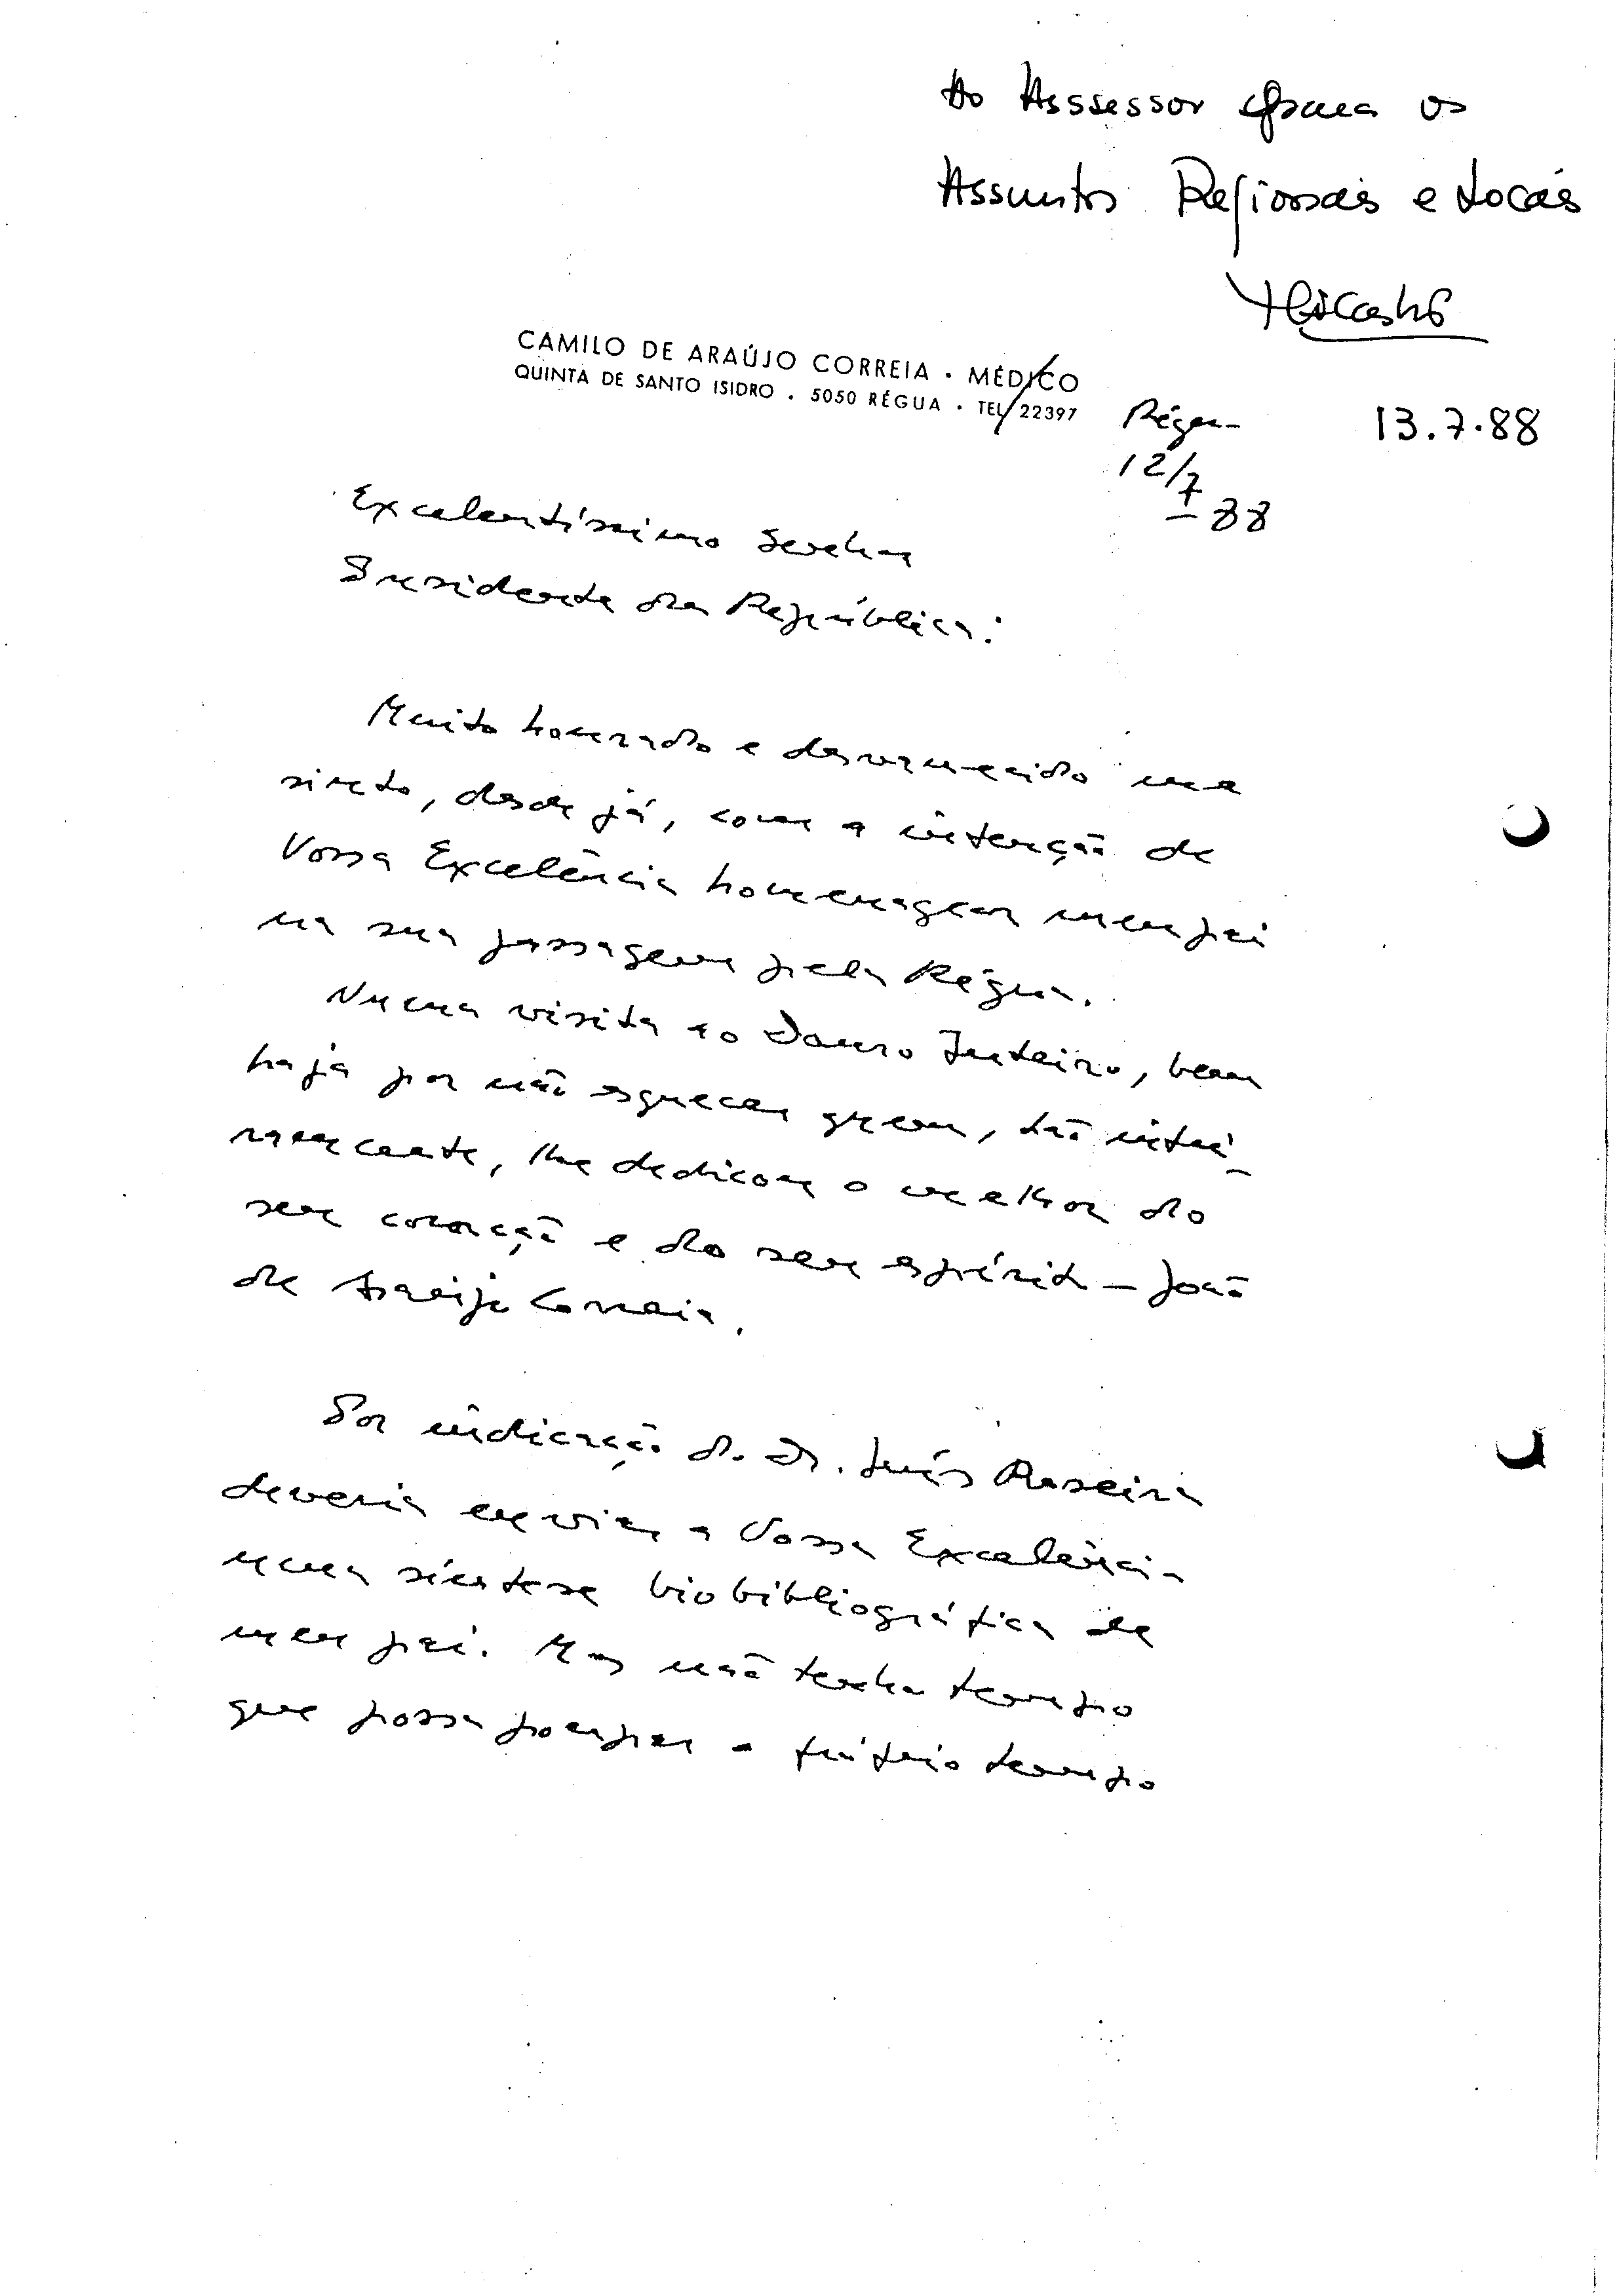 Ao Asssessor para os
Assuntos Regionais e Locais
13.7.88
CAMILO DE ARAÚJO CORREIA • MÉDICO
QUINTA DE SANTO ISIDRO . 5050 RÉGUA • TEL 22397
Régua
12/7
88
Excelentíssimo Senhor
Presidente da República:
Muito honrado e desvanecido me
sinto, desde já, com a intenção de
Vossa Excelência homenagear meu pai
na sua passagem pela Régua.
Numa visita ao Douro Inteiro, bem
haja por não esquecer quem, tão intei-
ramente, lhe dedicou o melhor do
seu coração e do seu espírito – João
de Araújo Correia.
Por indicação do Dr. Luís Roseira
deveria enviar a Vossa Excelência
uma síntese biobibliográfica de
meu pai. Mas não tenho tempo
que possa poupar o tempo